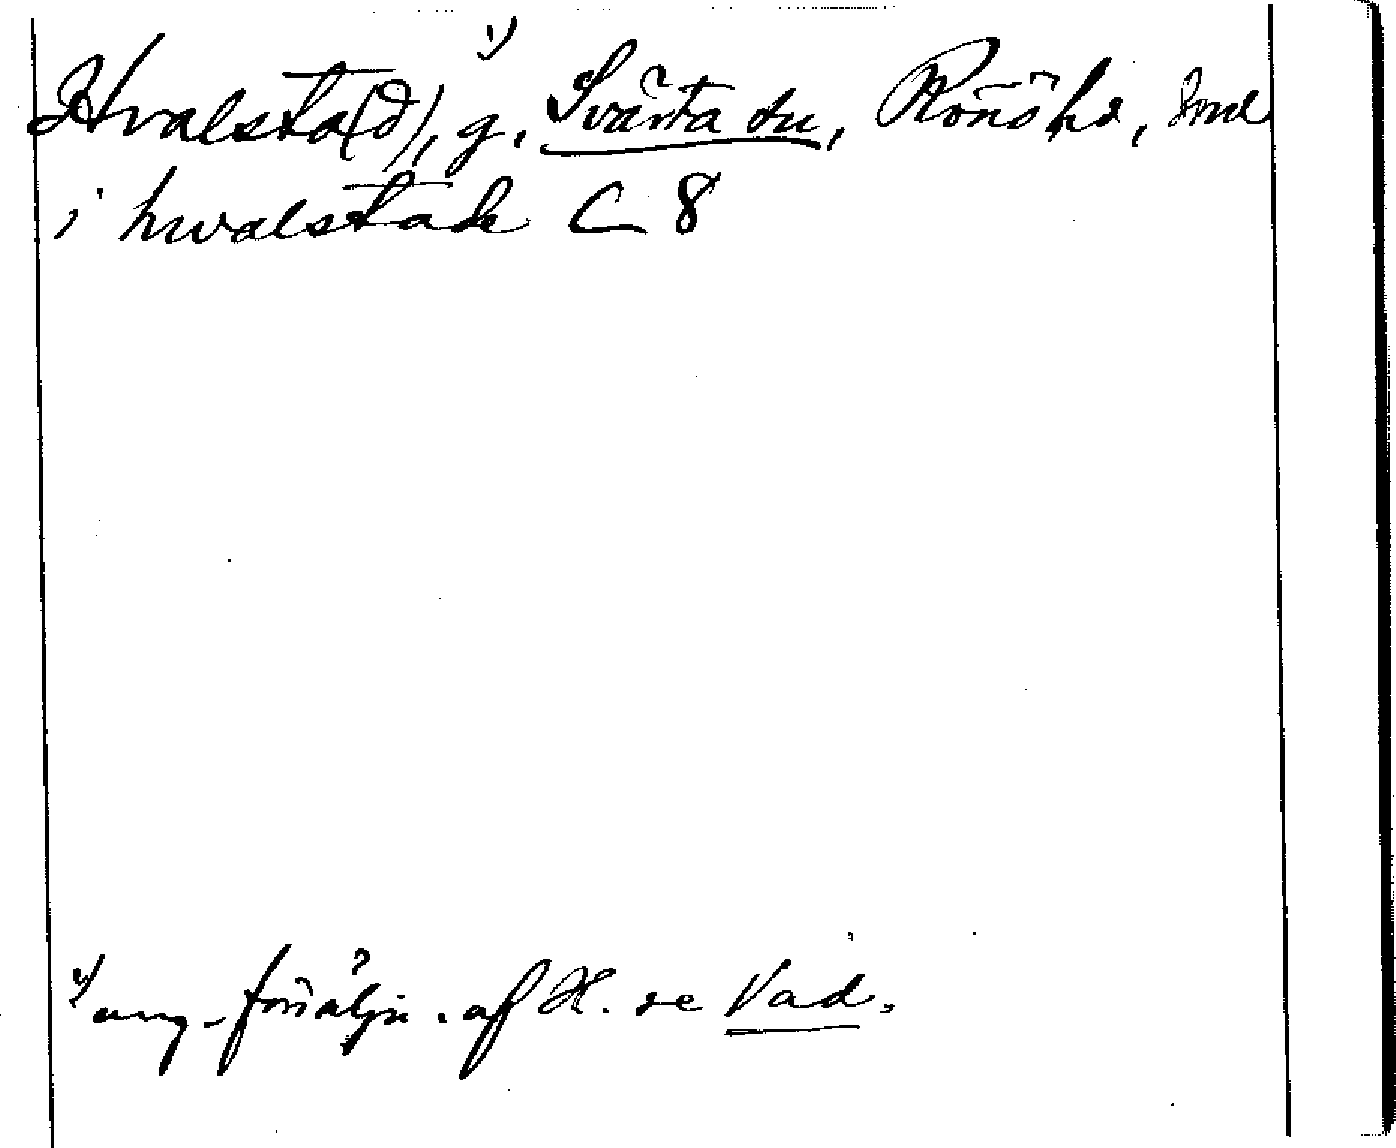 Hvalsta(d),¹⁾ g. Svärta sn, Rönö hd, Sml
i hwalstade C 8
¹⁾ ang. försäljn. af H. se Vad.